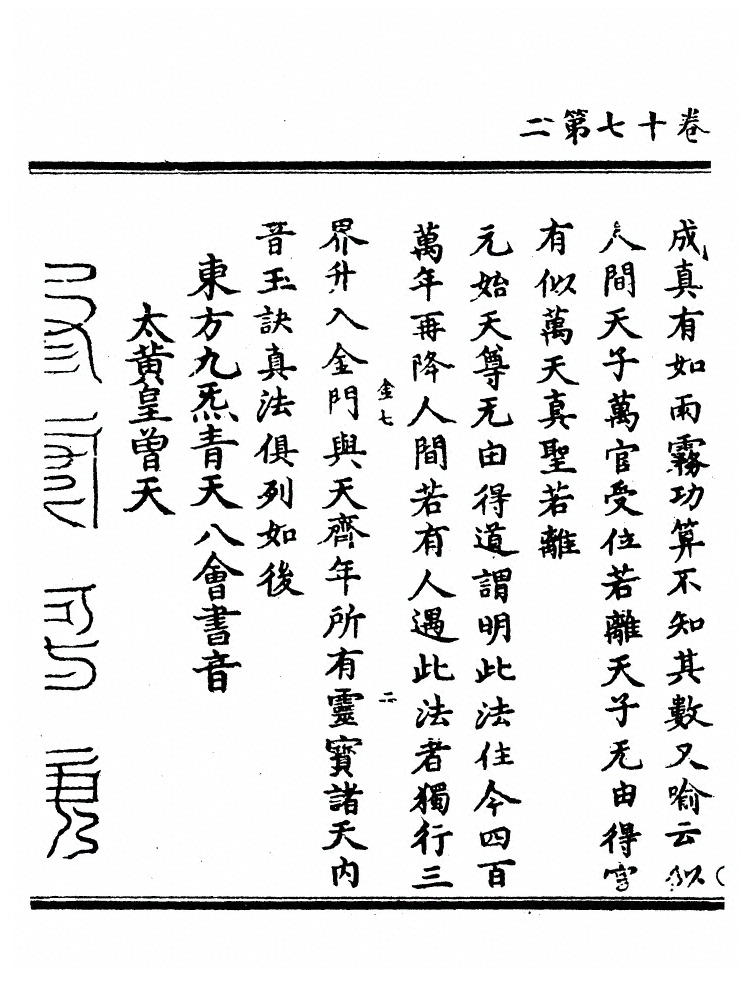 卷十七第二
成真有如雨霧功算不知其數又喻云似
人間天子萬官受位若離天子无由得官
有似萬天真聖若離
元始天尊无由得道謂明此法住今四百
萬年再降人間若有人遇此法者獨行三
金七 二
界升入金門與天齊年所有靈寳諸天內
音玉訣真法俱列如後
東方九炁青天八會書音
太黄皇曾天